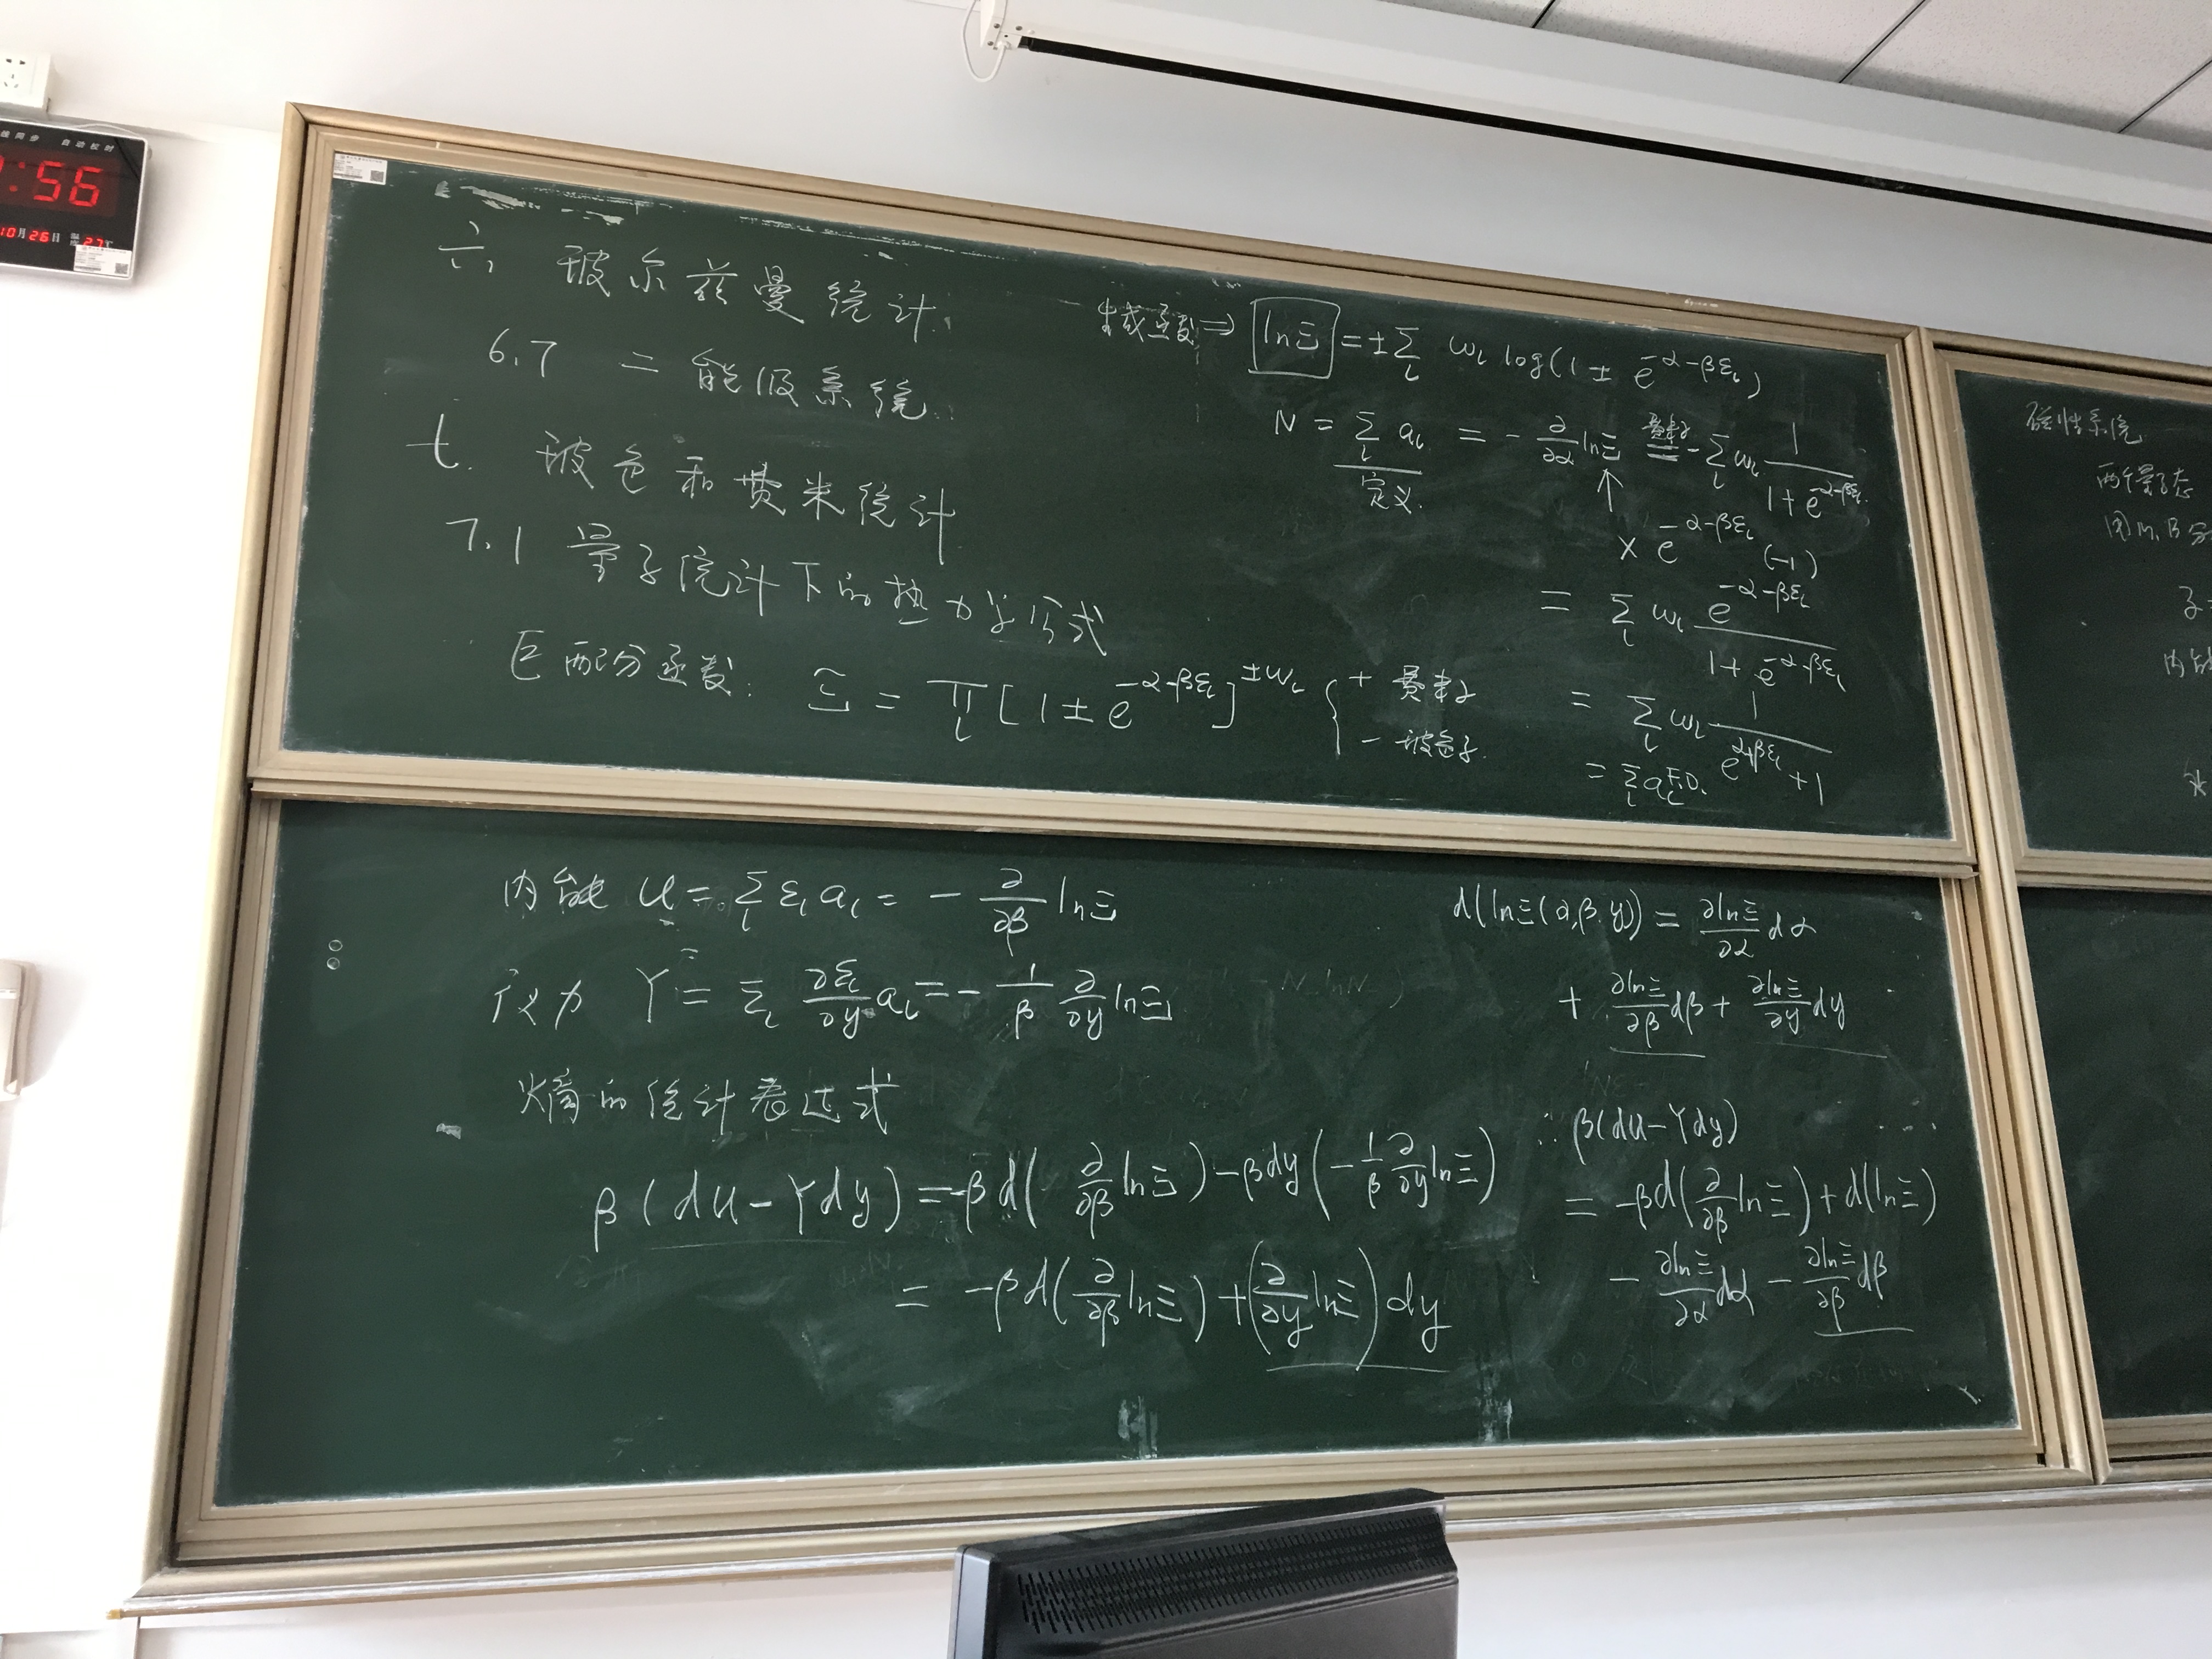 自动校时
:56
10月26日 27℃
六 玻尔兹曼统计
6.7 二能级系统
七. 玻色和费米统计
7.1 量子统计下的热力学公式
巨配分函数: Ξ = ∏_l [1 ± e^{-α-βε_l}]^{±ω_l} { + 费米子
- 玻色子
生成函数 ⇒ lnΞ = ±∑_l ω_l log(1 ± e^{-α-βε_l})
N = ∑_l a_l = -∂/∂α lnΞ 费米子 = -∑_l ω_l 1/(1+e^{-α-βε_l})
定义
↑
× e^{-α-βε_l} (-1)
= ∑_l ω_l e^{-α-βε_l}/(1+e^{-α-βε_l})
= ∑_l ω_l 1/(e^{α+βε_l}+1)
= ∑_l a_l^{F.D.}
内能 U = ∑_l ε_l a_l = -∂/∂β lnΞ
广义力 Y = ∑_l ∂ε_l/∂y a_l = -1/β ∂/∂y lnΞ
熵的统计表达式
β(dU-Ydy) = -βd(∂/∂β lnΞ) - βdy(-1/β ∂/∂y lnΞ)
= -βd(∂/∂β lnΞ) + (∂/∂y lnΞ)dy
d(lnΞ(α,β,y)) = ∂lnΞ/∂α dα
+ ∂lnΞ/∂β dβ + ∂lnΞ/∂y dy
∴ β(dU-Ydy)
= -βd(∂/∂β lnΞ) + d(lnΞ)
- ∂lnΞ/∂α dα - ∂lnΞ/∂β dβ
磁性系统
两个量子态
用M.B分
内能